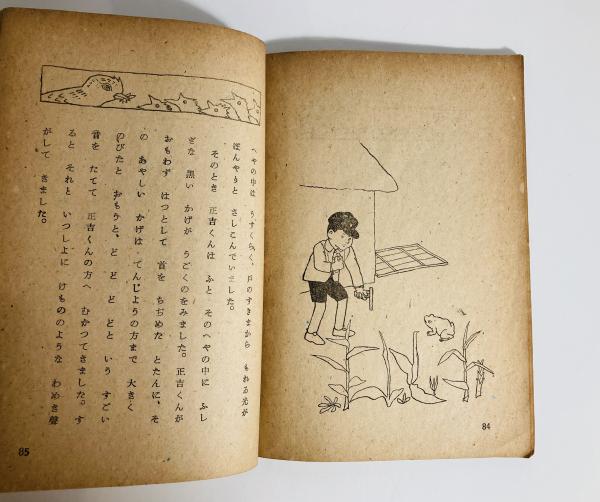 84
へやの中は うすくらく、戸のすきまから もれる光が
ぼんやりと さしこんでいました。
そのとき 正吉くんは ふと そのへやの中に ふし
ぎな 黒い かげが うごくのをみました。正吉くんが
おもわず はつとして 首を ちぢめた とたんに、そ
の あやしい かげは てんじようの方まで 大きく
のびたと おもうと、ど ど ど どと いう すごい
音を たてて 正吉くんの方へ むかつてきました。す
ると それと いつしよに けもののような わめき聲
がして きました。
85